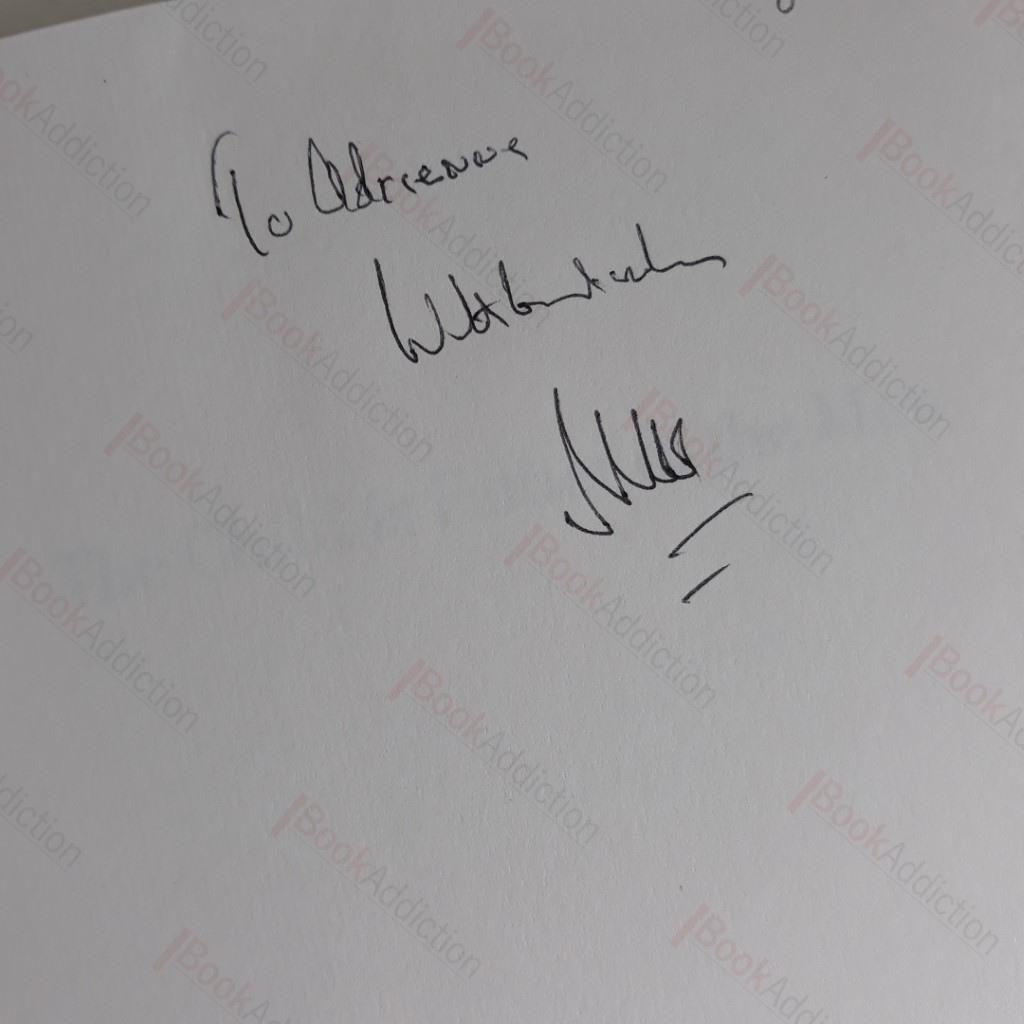 To Adrienne
With best wishes
BookAddiction
BookAddiction
BookAddiction
BookAddiction
BookAddiction
BookAddiction
BookAddiction
BookAddiction
BookAddiction
BookAddiction
BookAddiction
BookAddiction
BookAddiction
BookAddiction